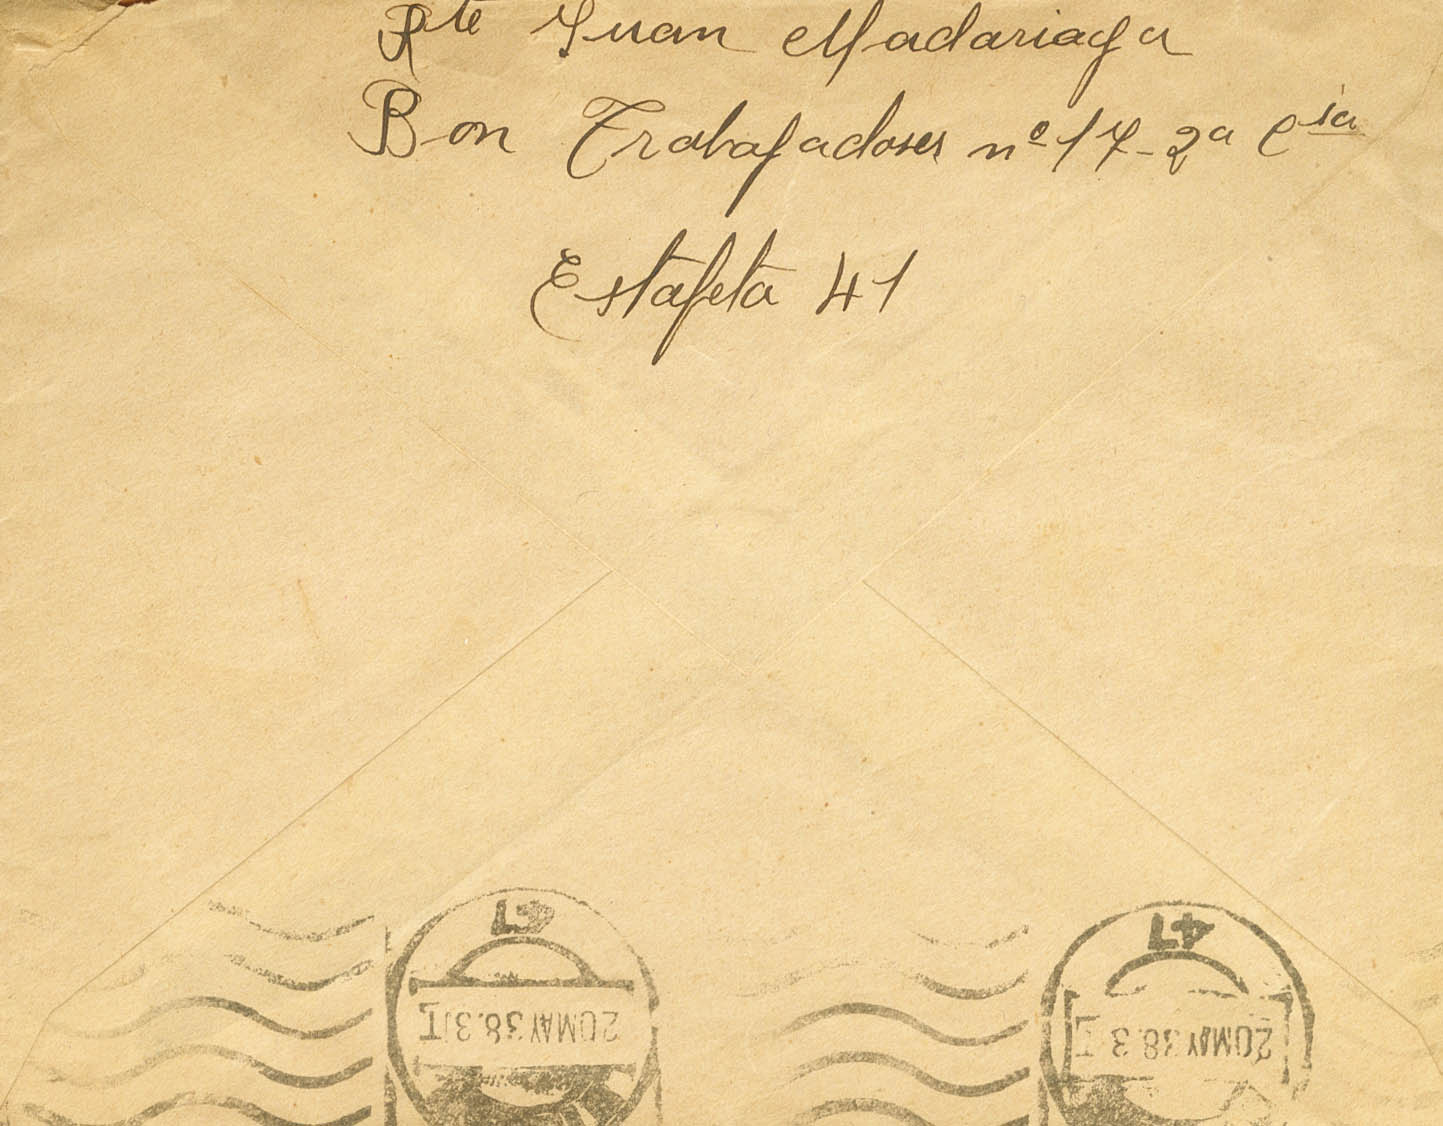 Rte Juan Madariaga
Bon Trabajadores nº 17-2ª Cia
Estafeta 41
41
20MAY38.3T
41
20MAY38.3T